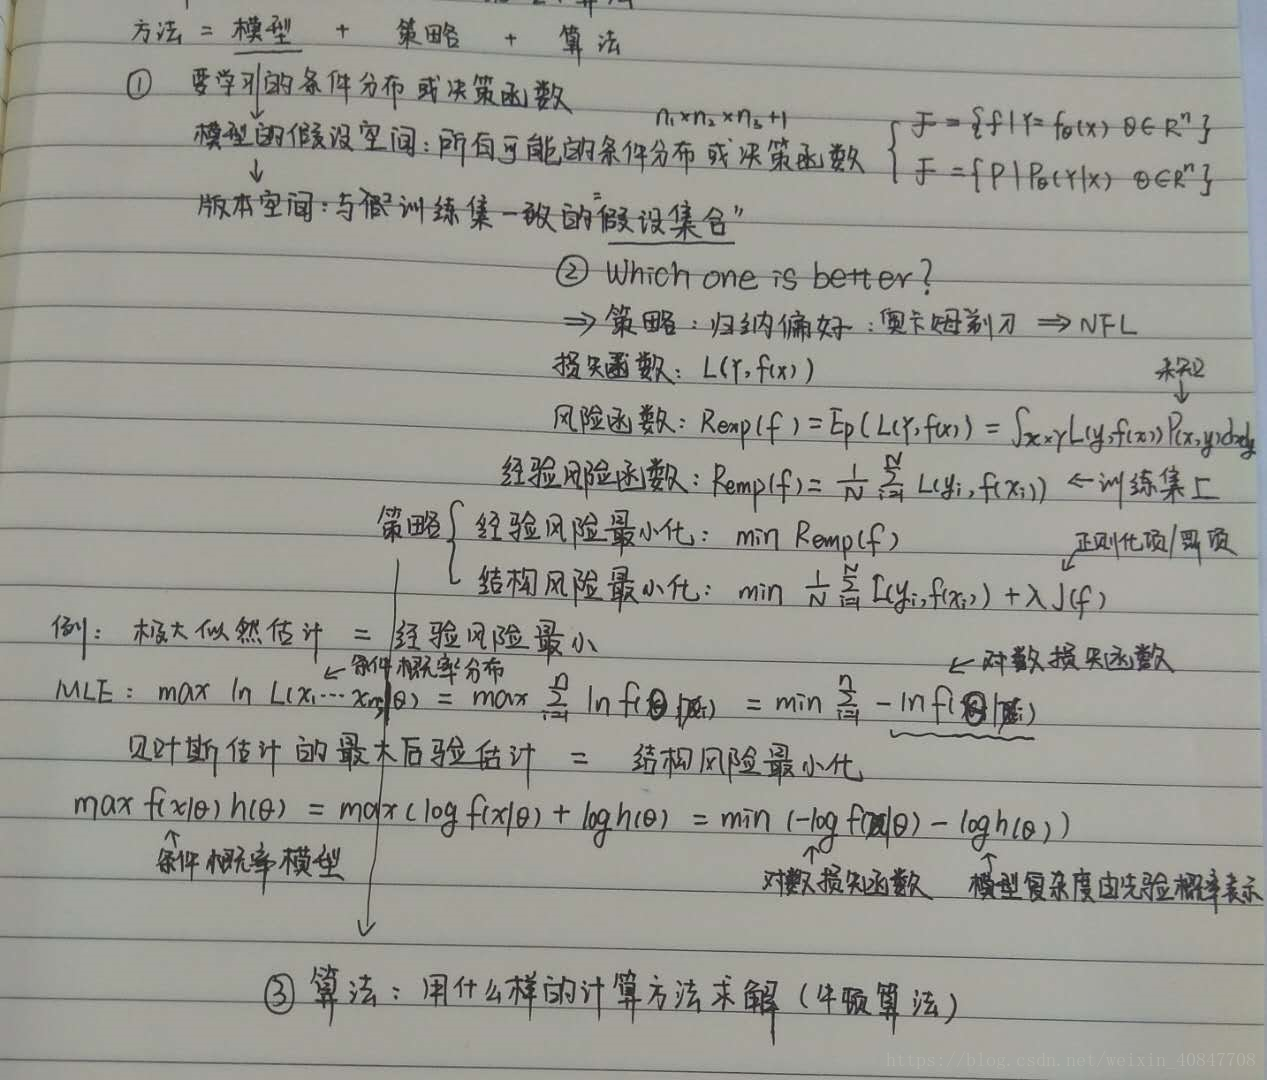 方法 = 模型 + 策略 + 算法
① 要学习的条件分布或决策函数
n₁×n₂×n₃+1
模型的假设空间：所有可能的条件分布或决策函数 { F = {f|Y = fθ(x) θ∈Rⁿ}
F = {P|Pθ(Y|X) θ∈Rⁿ}
版本空间：与训练集一致的"假设集合"
② Which one is better?
⇒ 策略：归纳偏好：奥卡姆剃刀 ⇒ NFL
损失函数：L(Y,f(x))
未知
风险函数：Rexp(f) = Ep(L(Y,f(x)) = ∫x×y L(y,f(x))P(x,y)dxdy
经验风险函数：Remp(f) = 1/N Σᵢ₌₁ᴺ L(yi,f(xi)) ← 训练集上
策略 { 经验风险最小化：min Remp(f)
正则化项/罚项
结构风险最小化：min 1/N Σᵢ₌₁ᴺ L(yi,f(xi)) + λJ(f)
例：极大似然估计 = 经验风险最小
← 条件概率分布
← 对数损失函数
MLE：max ln L(x₁···xn|θ) = max Σᵢ₌₁ⁿ ln f( | ) = min Σᵢ₌₁ⁿ -ln f( | )
贝叶斯估计的最大后验估计 = 结构风险最小化
max f(x|θ)h(θ) = max(log f(x|θ) + log h(θ) = min (-log f(x|θ) - log h(θ))
↑ 条件概率模型
↑ 对数损失函数 ↑ 模型复杂度由先验概率表示
③ 算法：用什么样的计算方法求解（牛顿算法）
https://blog.csdn.net/weixin_40847708